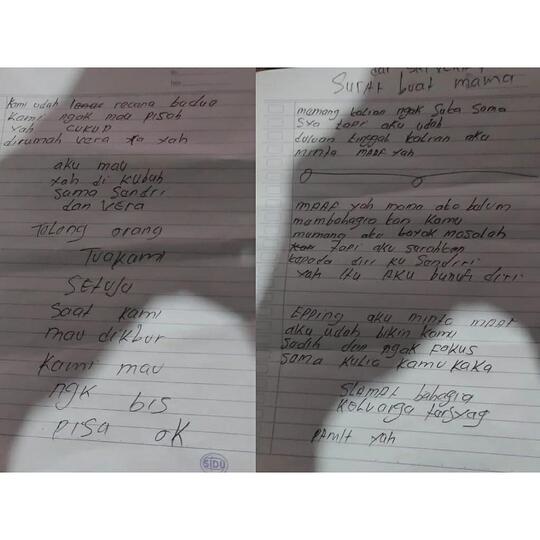 kami udah recana badua
kami ngak mau pisah
yah cukup
dirumah vera ya yah
aku mau
yah di kubah
sama Sandri
dan vera
Tolong orang
Tuakami
SETUJU
saat kami
mau dikbur
kami mau
ngk bis
pisa OK
SIDU
Surat buat mama
mamang kalian ngak suka sama
sya tapi aku udah
duluan tinggal kalian aku
minta maaf yah
maaf yah mama aku balum
mambahagia kan kamu
mamang aku bayak masalah
Tapi aku sarahkan
kapada diri ku Sandiri
yah itu AKU bunuh diri
Epping aku minta maaf
aku udah bikin kamu
sadih dan ngak fokus
sama kulia kamu kaka
SLAMAT bahagia
keluarga tarsyag
pamit yah